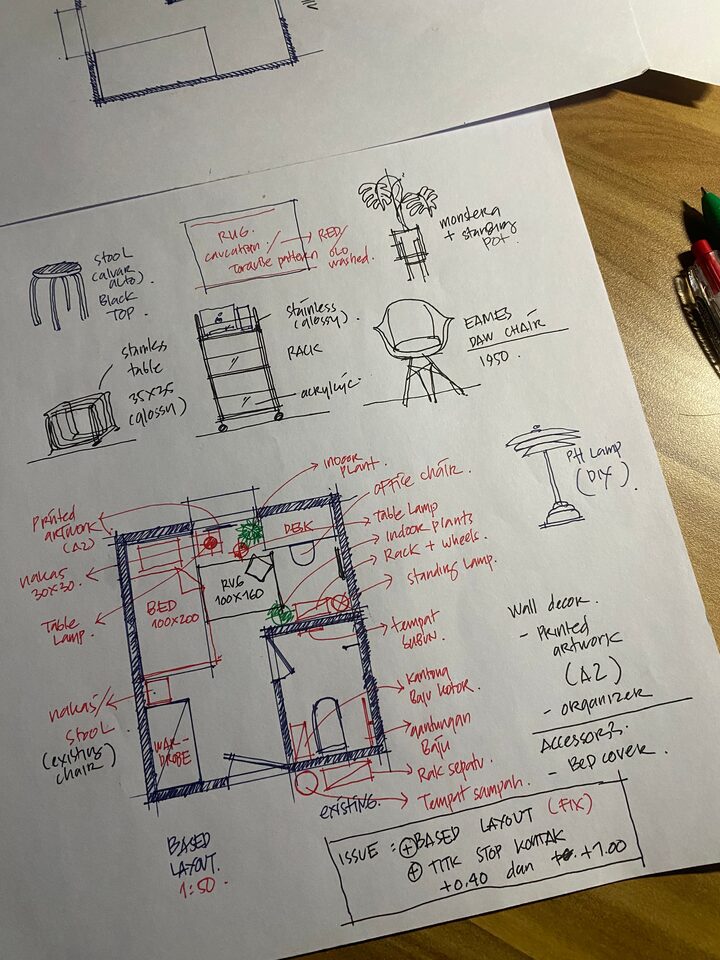 STOOL
(alvar
alto)
BLACK
TOP
RUG.
caucatian /
Torquise pattern
RED/
OLD
washed.
monstera
+ standing
pot.
stainless
table
35x25
(glossy)
stainless
(glossy)
RACK
acrylic
EAMES
DAW CHAIR
1950
PH Lamp
(DIY)
Printed
artwork
(A2)
nakas
30x30
Table
Lamp
nakas/
stool
(existing
chair)
indoor
plant
office chair
Table Lamp
Indoor plants
Rack + wheels
standing Lamp
tempat
sabun
kantong
Baju kotor
gantungan
Baju
Rak sepatu
Tempat sampah
existing
DESK
RUG
100x160
BED
100x200
WAR-
DROBE
BASED
LAYOUT
1:50
Wall decor
- Printed
artwork
(A2)
- organizer
- BED COVER
ISSUE : + BASED LAYOUT (FIX)
+ TITIK STOP KONTAK
+0.40 dan +1.00